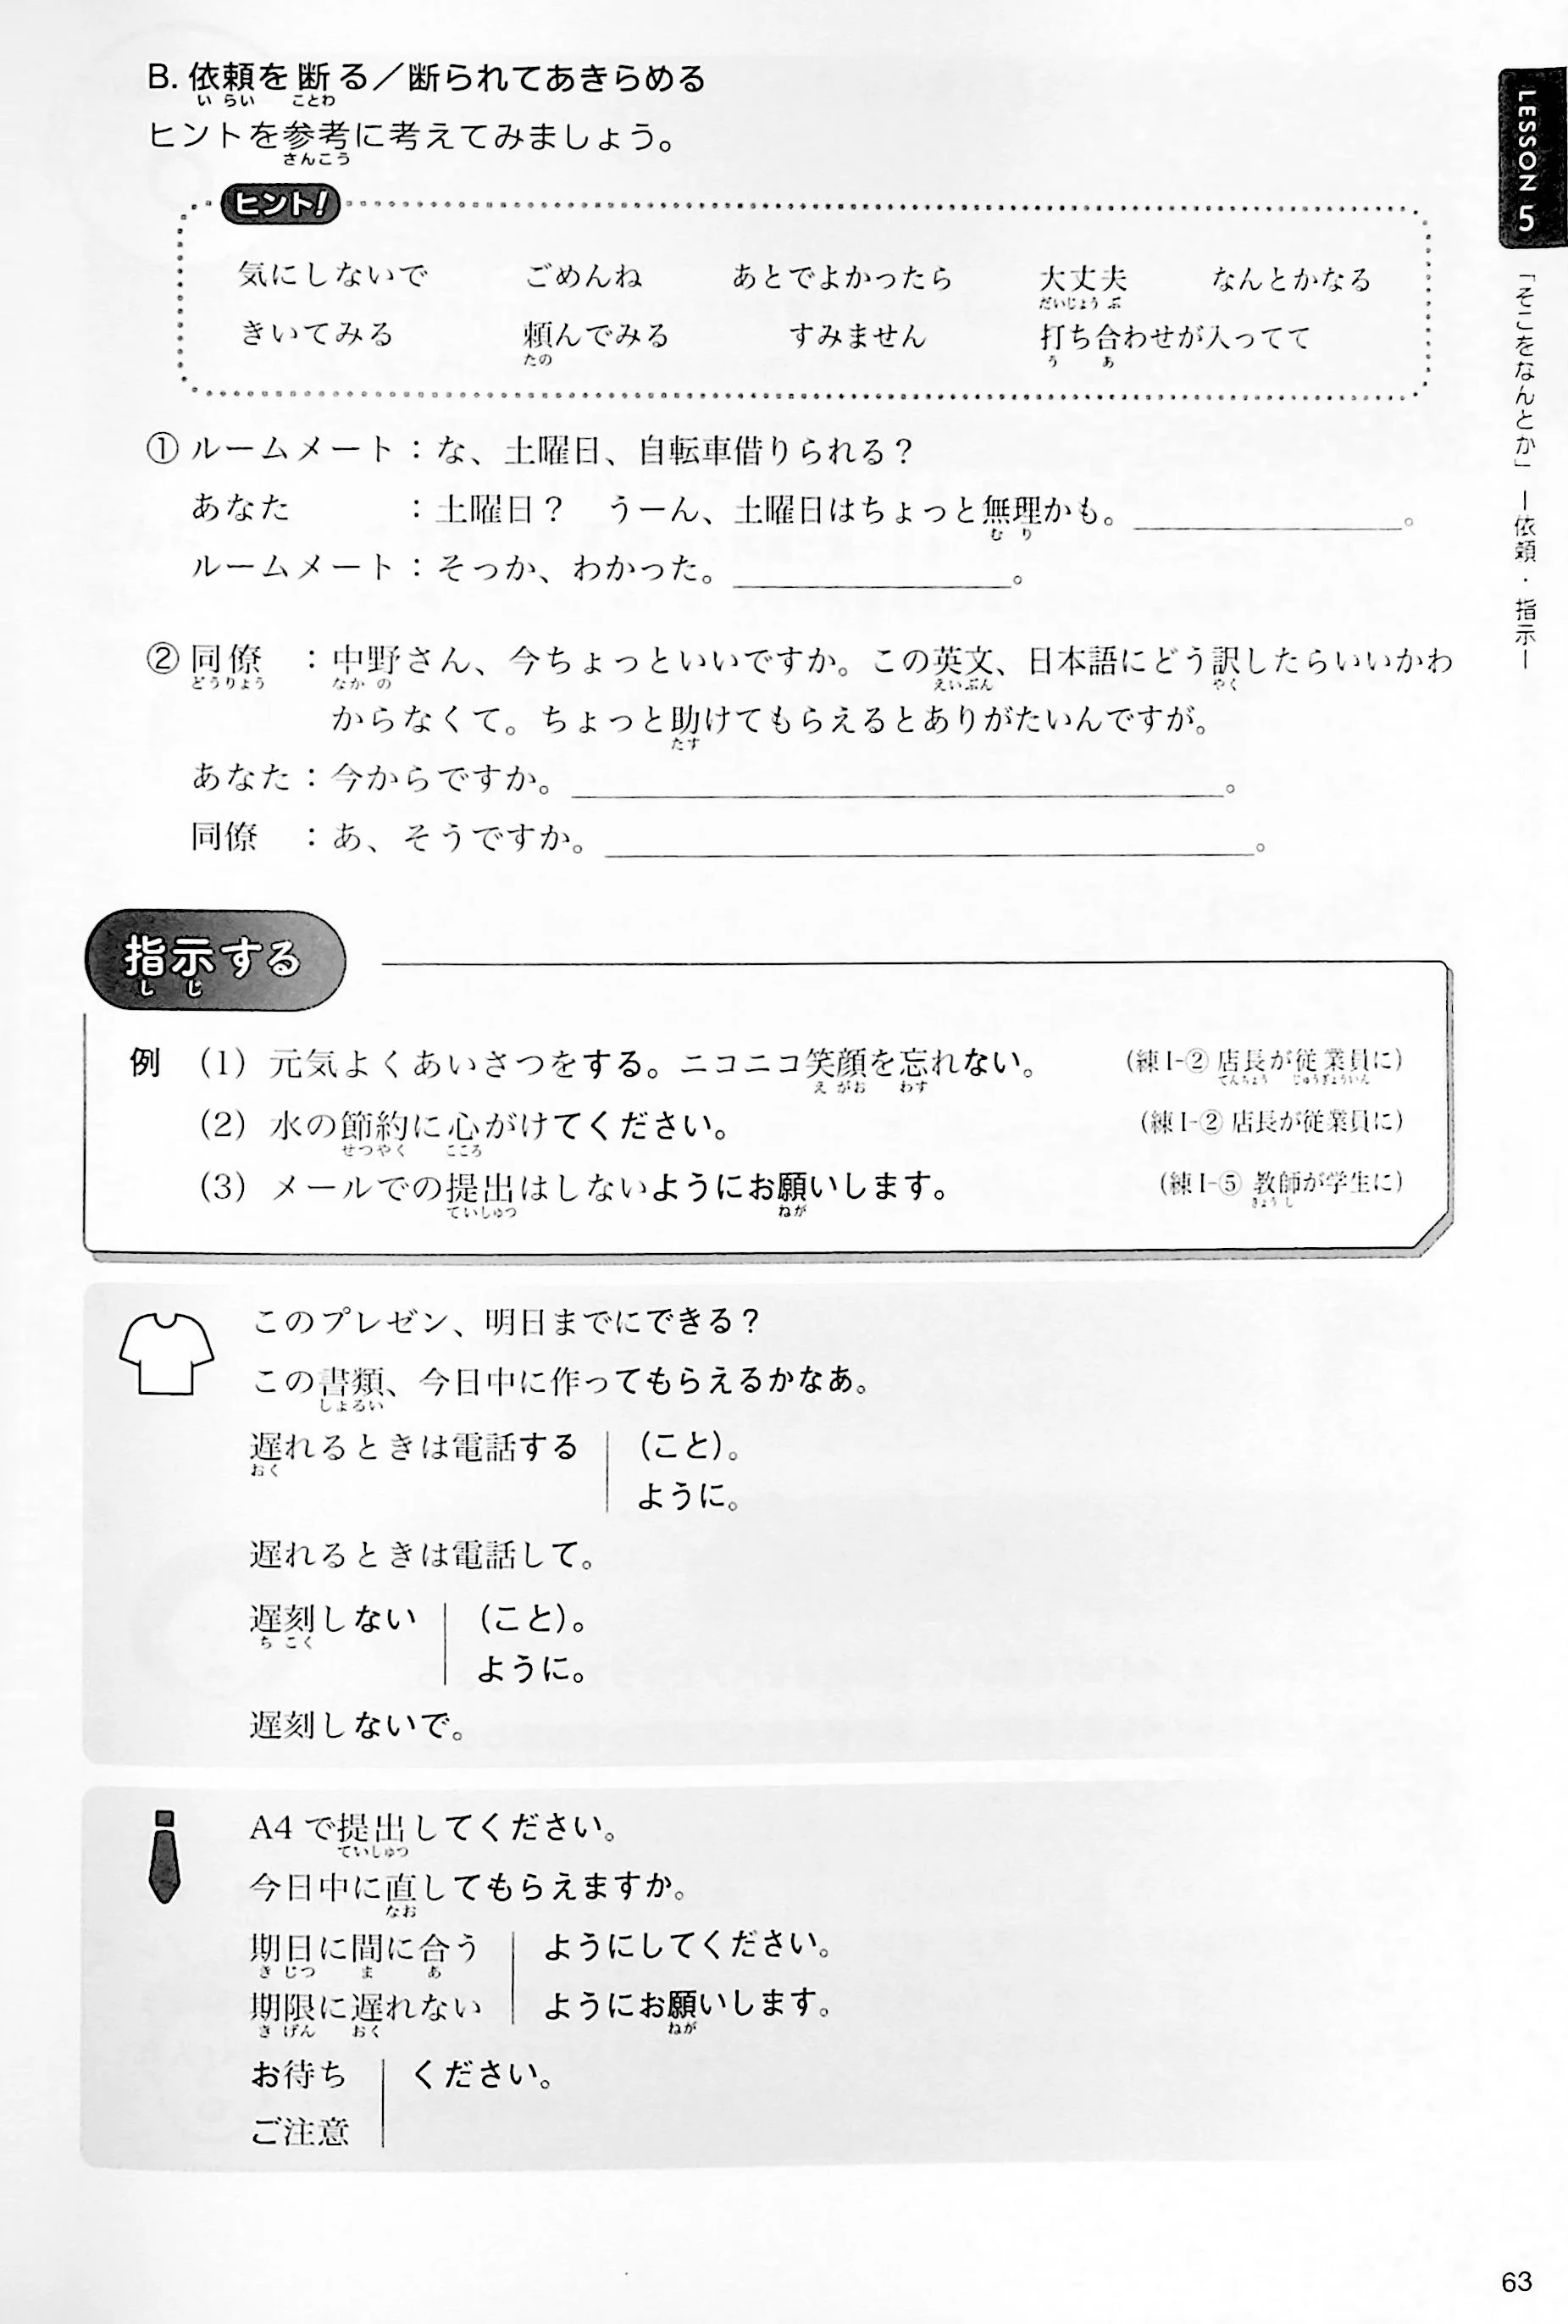 B. 依頼を断る／断られてあきらめる
いらい ことわ
ヒントを参考に考えてみましょう。
さんこう
ヒント！
気にしないで ごめんね あとでよかったら 大丈夫 なんとかなる
だいじょうぶ
きいてみる 頼んでみる すみません 打ち合わせが入ってて
たの う あ
① ルームメート：な、土曜日、自転車借りられる？
あなた ：土曜日？ うーん、土曜日はちょっと無理かも。＿＿＿＿＿＿＿＿。
むり
ルームメート：そっか、わかった。＿＿＿＿＿＿＿＿。
② 同僚 ：中野さん、今ちょっといいですか。この英文、日本語にどう訳したらいいかわ
どうりょう なかの えいぶん やく
からなくて。ちょっと助けてもらえるとありがたいんですが。
たす
あなた：今からですか。＿＿＿＿＿＿＿＿＿＿＿＿＿＿＿＿。
同僚 ：あ、そうですか。＿＿＿＿＿＿＿＿＿＿＿＿＿＿＿＿。
指示する
しじ
例 （1）元気よくあいさつをする。ニコニコ笑顔を忘れない。 （練Ⅰ-② 店長が従業員に）
えがお わす てんちょう じゅうぎょういん
（2）水の節約に心がけてください。 （練Ⅰ-② 店長が従業員に）
せつやく こころ
（3）メールでの提出はしないようにお願いします。 （練Ⅰ-⑤ 教師が学生に）
ていしゅつ ねが きょうし
このプレゼン、明日までにできる？
この書類、今日中に作ってもらえるかなあ。
しょるい
遅れるときは電話する （こと）。
おく
ように。
遅れるときは電話して。
遅刻しない （こと）。
ちこく
ように。
遅刻しないで。
A4で提出してください。
ていしゅつ
今日中に直してもらえますか。
なお
期日に間に合う ようにしてください。
きじつ ま あ
期限に遅れない ようにお願いします。
きげん おく ねが
お待ち ください。
ご注意
LESSON 5
「そこをなんとか」―依頼・指示―
63